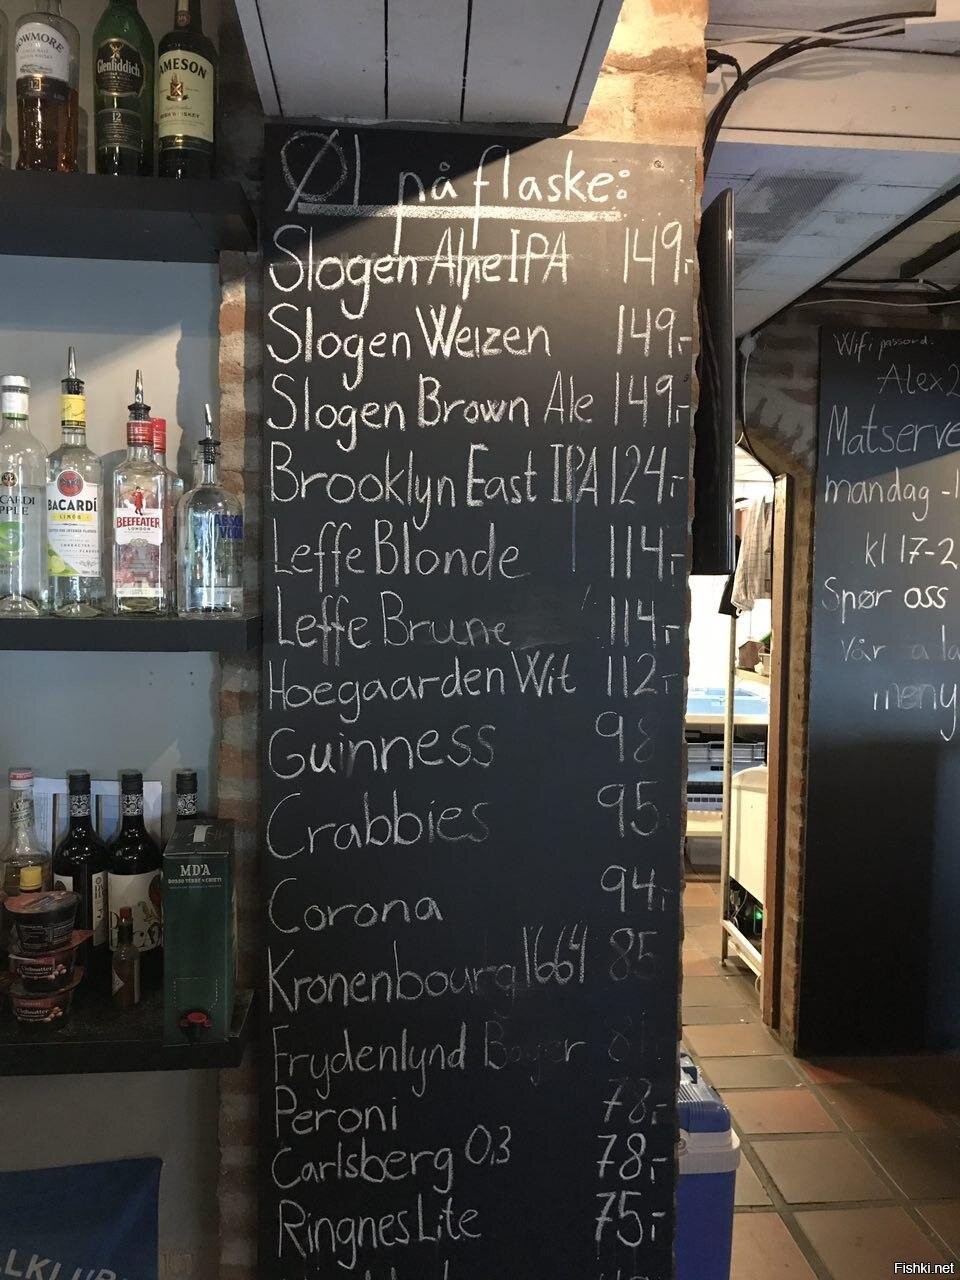 Øl på flaske:
Slogen Alpe IPA 149,-
Slogen Weizen 149,-
Slogen Brown Ale 149,-
Brooklyn East IPA 124,-
Leffe Blonde 114,-
Leffe Brune 114,-
Hoegaarden Wit 112,-
Guinness 98
Crabbies 95
Corona 94,-
Kronenbourg 1664 85
Frydenlynd Bayer
Peroni 78,-
Carlsberg 0,3 78,-
Ringnes Lite 75,-
Wifi passord:
Alex2
Matserve
mandag -
kl 17-2
Spør oss
vår a la
meny
BOWMORE
12
Glenfiddich
12
JAMESON
IRISH WHISKEY
BACARDI
BACARDÍ
LIMÓN
BEEFEATER
LONDON
MD'A
LKLUB
Fishki.net